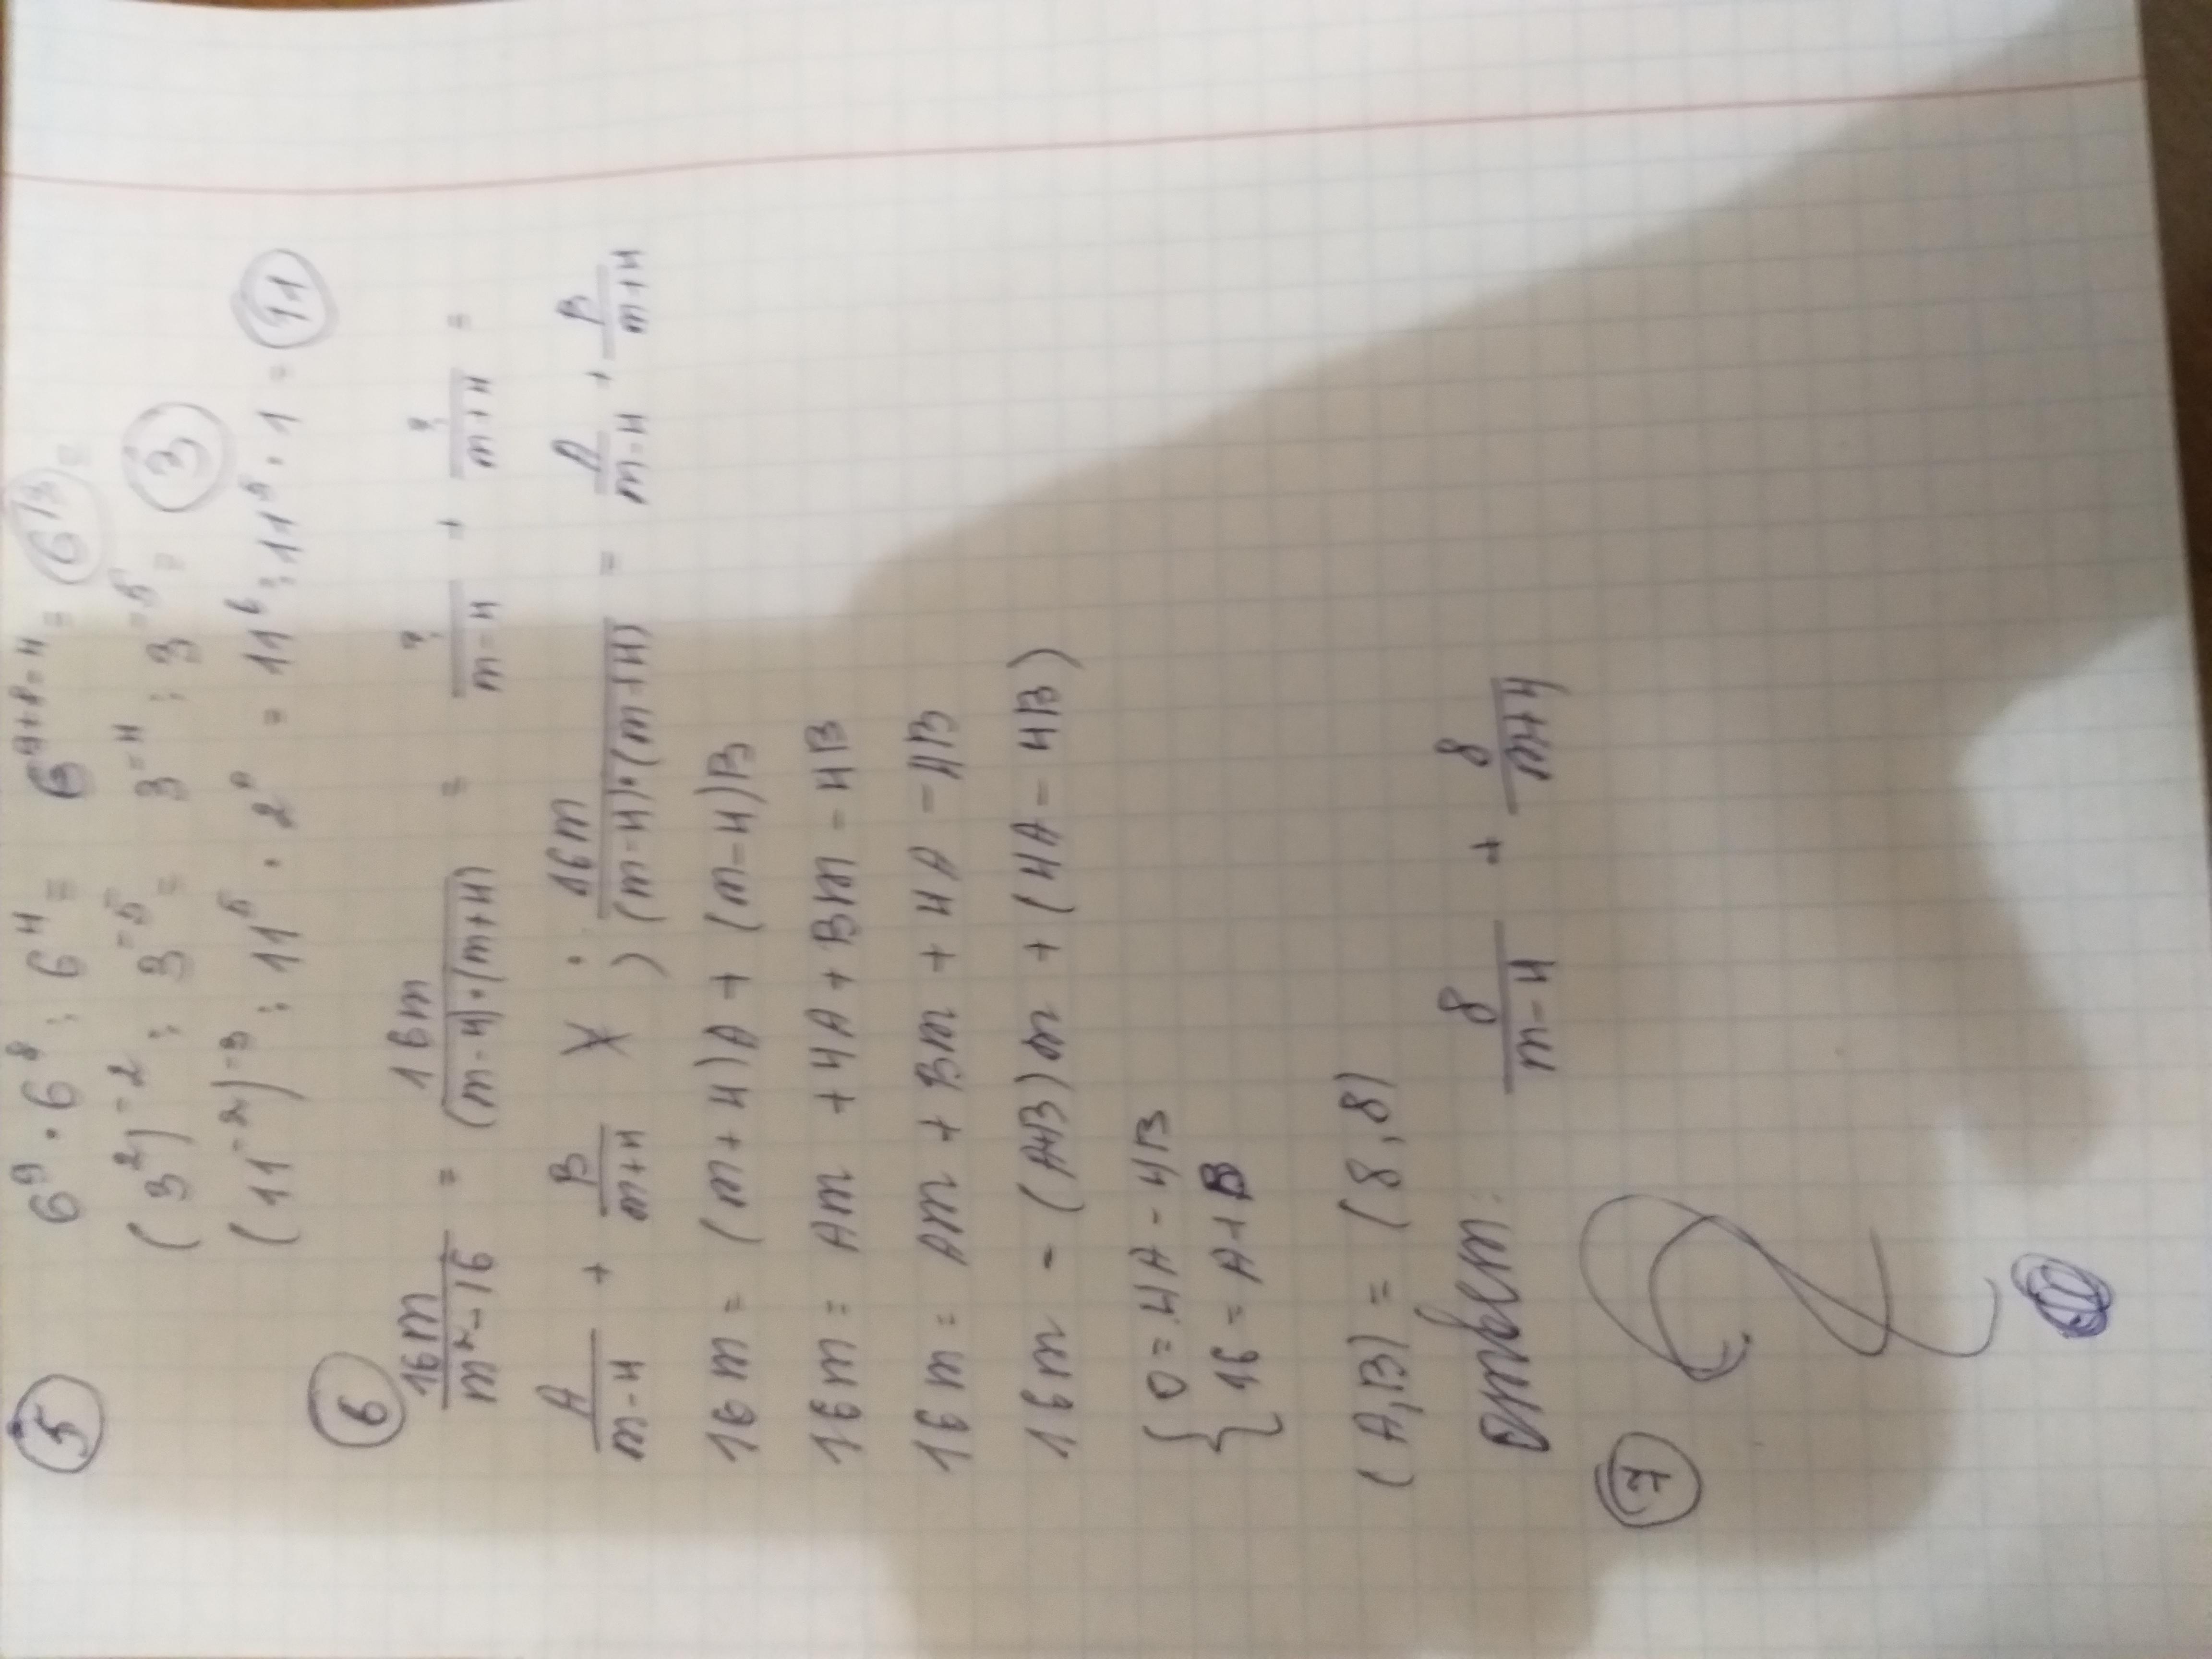 5 6⁹ · 6⁸ : 6⁴ = 6⁹⁺⁸⁻⁴ = 6¹³ =
(3²)⁻² : 3⁻⁵ = 3⁻⁴ : 3⁻⁵ = 3
(11⁻²)⁻³ : 11⁵ · 2⁰ = 11⁶ : 11⁵ · 1 = 11
6 16m/(m²-16) = 16m/((m-4)·(m+4)) = ?/(m-4) + ?/(m+4) =
A/(m-4) + B/(m+4) 16m/((m-4)·(m+4)) = A/(m-4) + B/(m+4)
16m = (m+4)A + (m-4)B
16m = Am + 4A + Bm - 4B
16m = Am + Bm + 4A - 4B
16m - (A+B)m + (4A - 4B)
{ 0 = 4A - 4B
16 = A + B
(A,B) = (8,8)
Ответ: 8/(m-4) + 8/(m+4)
7